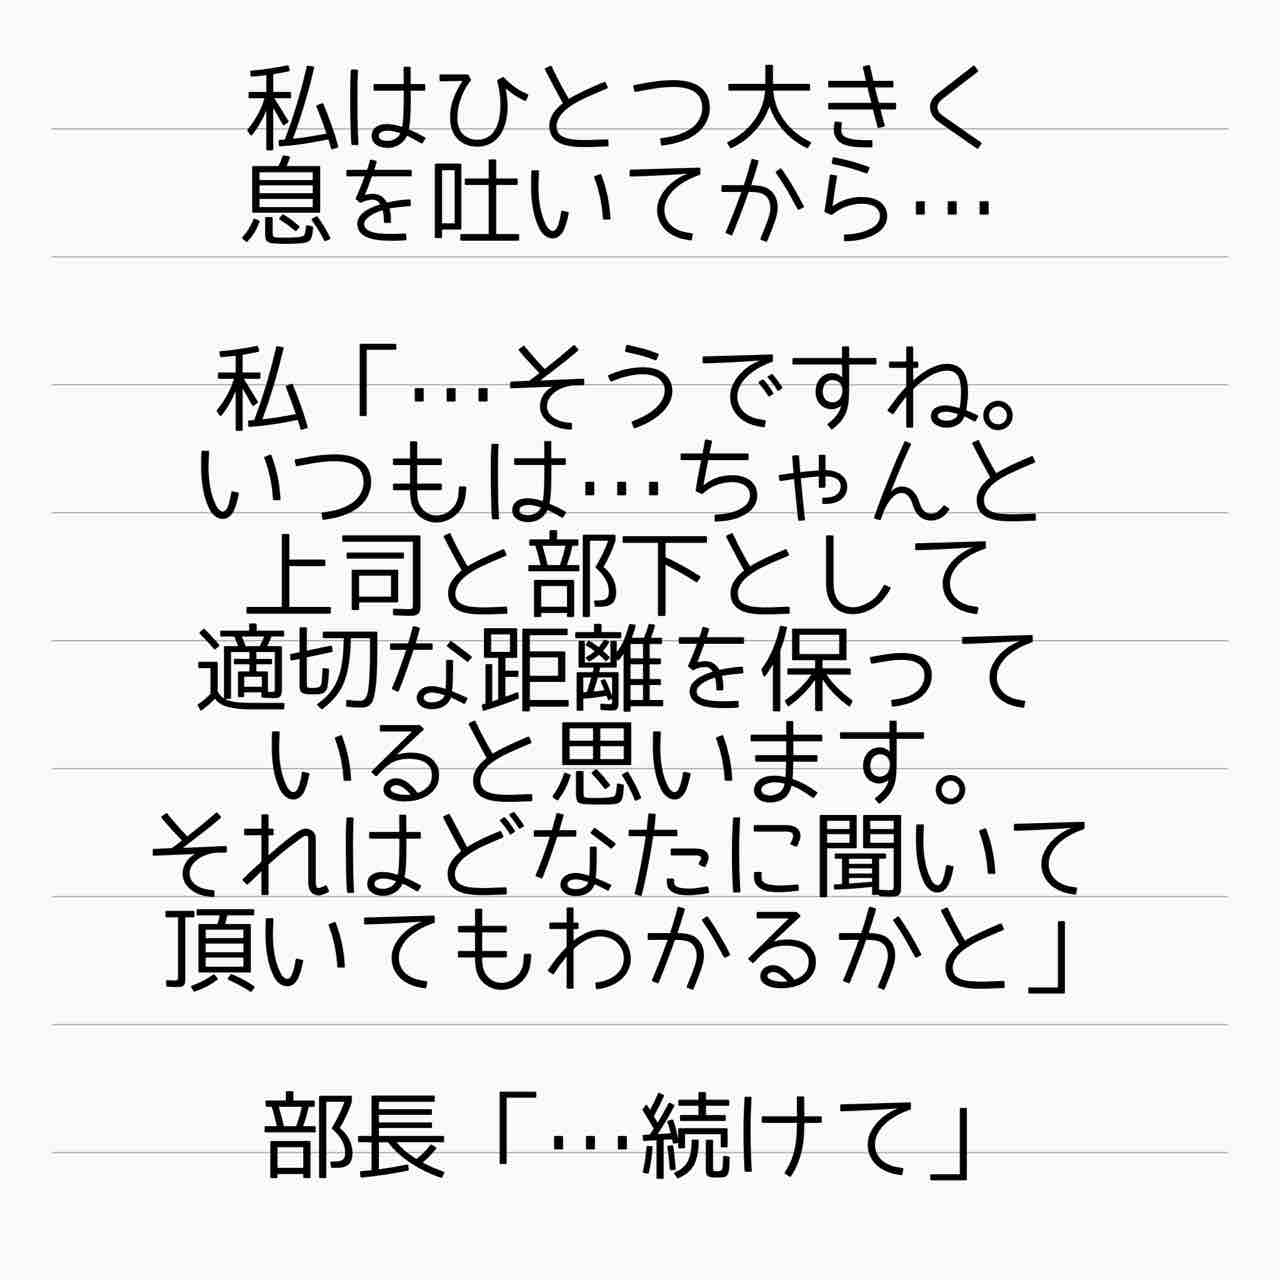 私はひとつ大きく
息を吐いてから…
私「…そうですね。
いつもは…ちゃんと
上司と部下として
適切な距離を保って
いると思います。
それはどなたに聞いて
頂いてもわかるかと」
部長「…続けて」